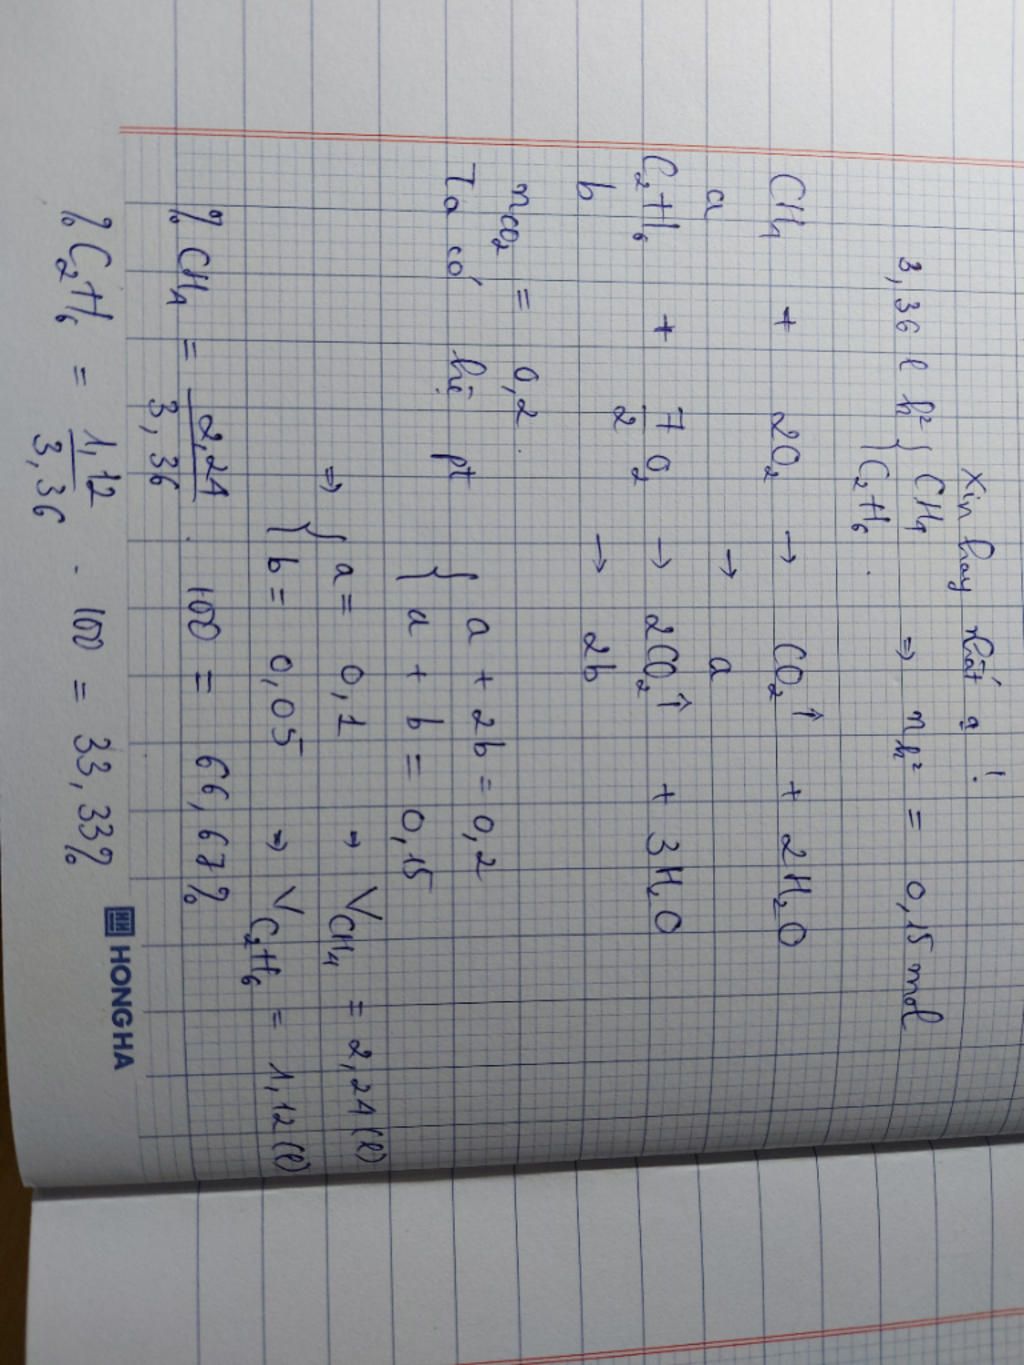 Xin hay nhất ạ !
3,36 l h² { CH4 ⇒ n h² = 0,15 mol
C2H6 .
CH4 + 2O2 → CO2↑ + 2H2O
a → a
C2H6 + 7/2 O2 → 2CO2↑ + 3H2O
b → 2b
nCO2 = 0,2 .
Ta có hệ pt { a + 2b = 0,2
a + b = 0,15
⇒ { a = 0,1 → VCH4 = 2,24 (l)
b = 0,05 → VC2H6 = 1,12 (l)
% CH4 = 2,24/3,36 . 100 = 66,67%
% C2H6 = 1,12/3,36 . 100 = 33,33%
HONG HA